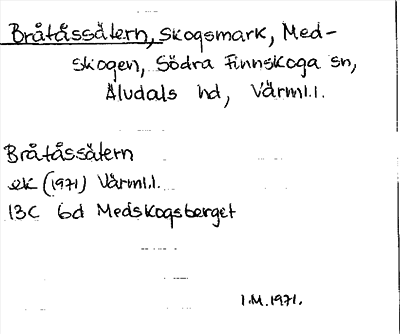 Bråtåssätern, skogsmark, Med-
skogen, Södra Finnskoga sn,
Älvdals hd, Värml.l.
Bråtåssätern
ek (1971) Värml.l.
13C 6d Medskogsberget
I.M. 1971.